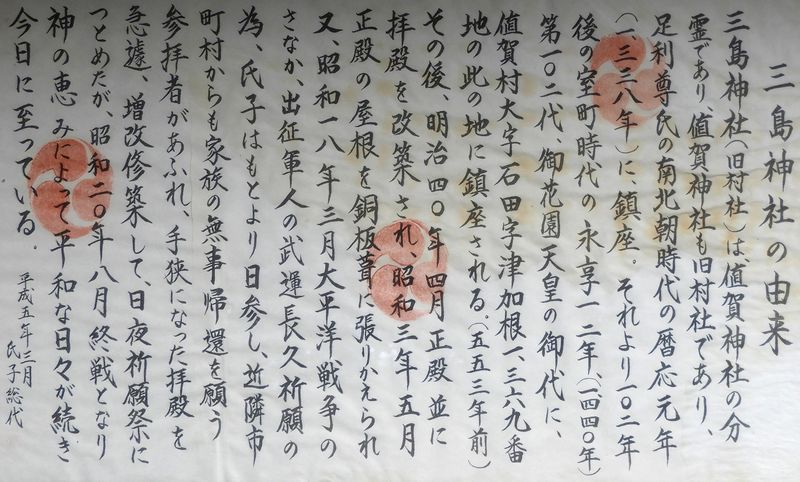 三島神社の由来
三島神社(旧村社)は、値賀神社の分
霊であり、値賀神社も旧村社であり、
足利尊氏の南北朝時代の暦応元年
(一、三三八年)に、鎮座。それより一〇二年
後の室町時代の永享一二年、(一、四四〇年)
第一〇二代御花園天皇の御代に、
値賀村大字石田字津加根一、三六九番
地の此の地に鎮座される。(五五三年前)
その後、明治四〇年四月正殿並に
拝殿を改築され、昭和三年五月
正殿の屋根を銅板葺に張りかえられ
又、昭和一八年三月大平洋戦争の
さなか、出征軍人の武運長久祈願の
為、氏子はもとより日参し、近隣市
町村からも家族の無事帰還を願う
参拝者があふれ、手狭になった拝殿を
急遽、増改修築して、日夜祈願祭に
つとめたが、昭和二〇年八月終戦となり
神の恵みによって平和な日々が続き
今日に至っている。
平成五年三月
氏子総代